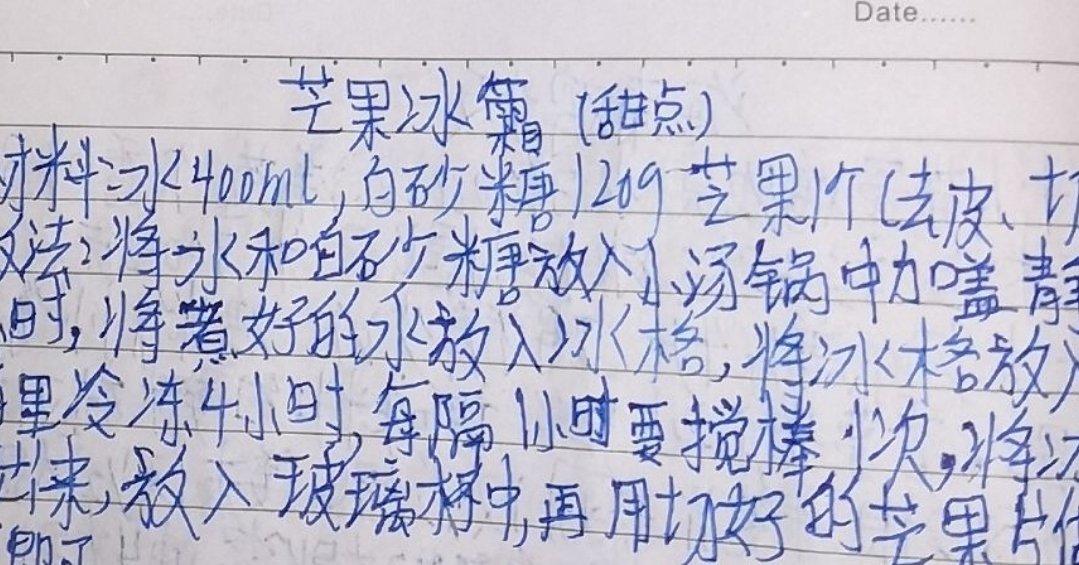 Date......
芒果冰霜(甜点)
材料:水400ml,白砂糖120g 芒果1个(去皮、切
做法:将水和白砂糖放入小汤锅中加盖静
时,将煮好的水放入冰格,将冰格放入
里冷冻4小时,每隔1小时要搅棒1次,将冰
出来,放入玻璃杯中,再用切好的芒果片做
即可